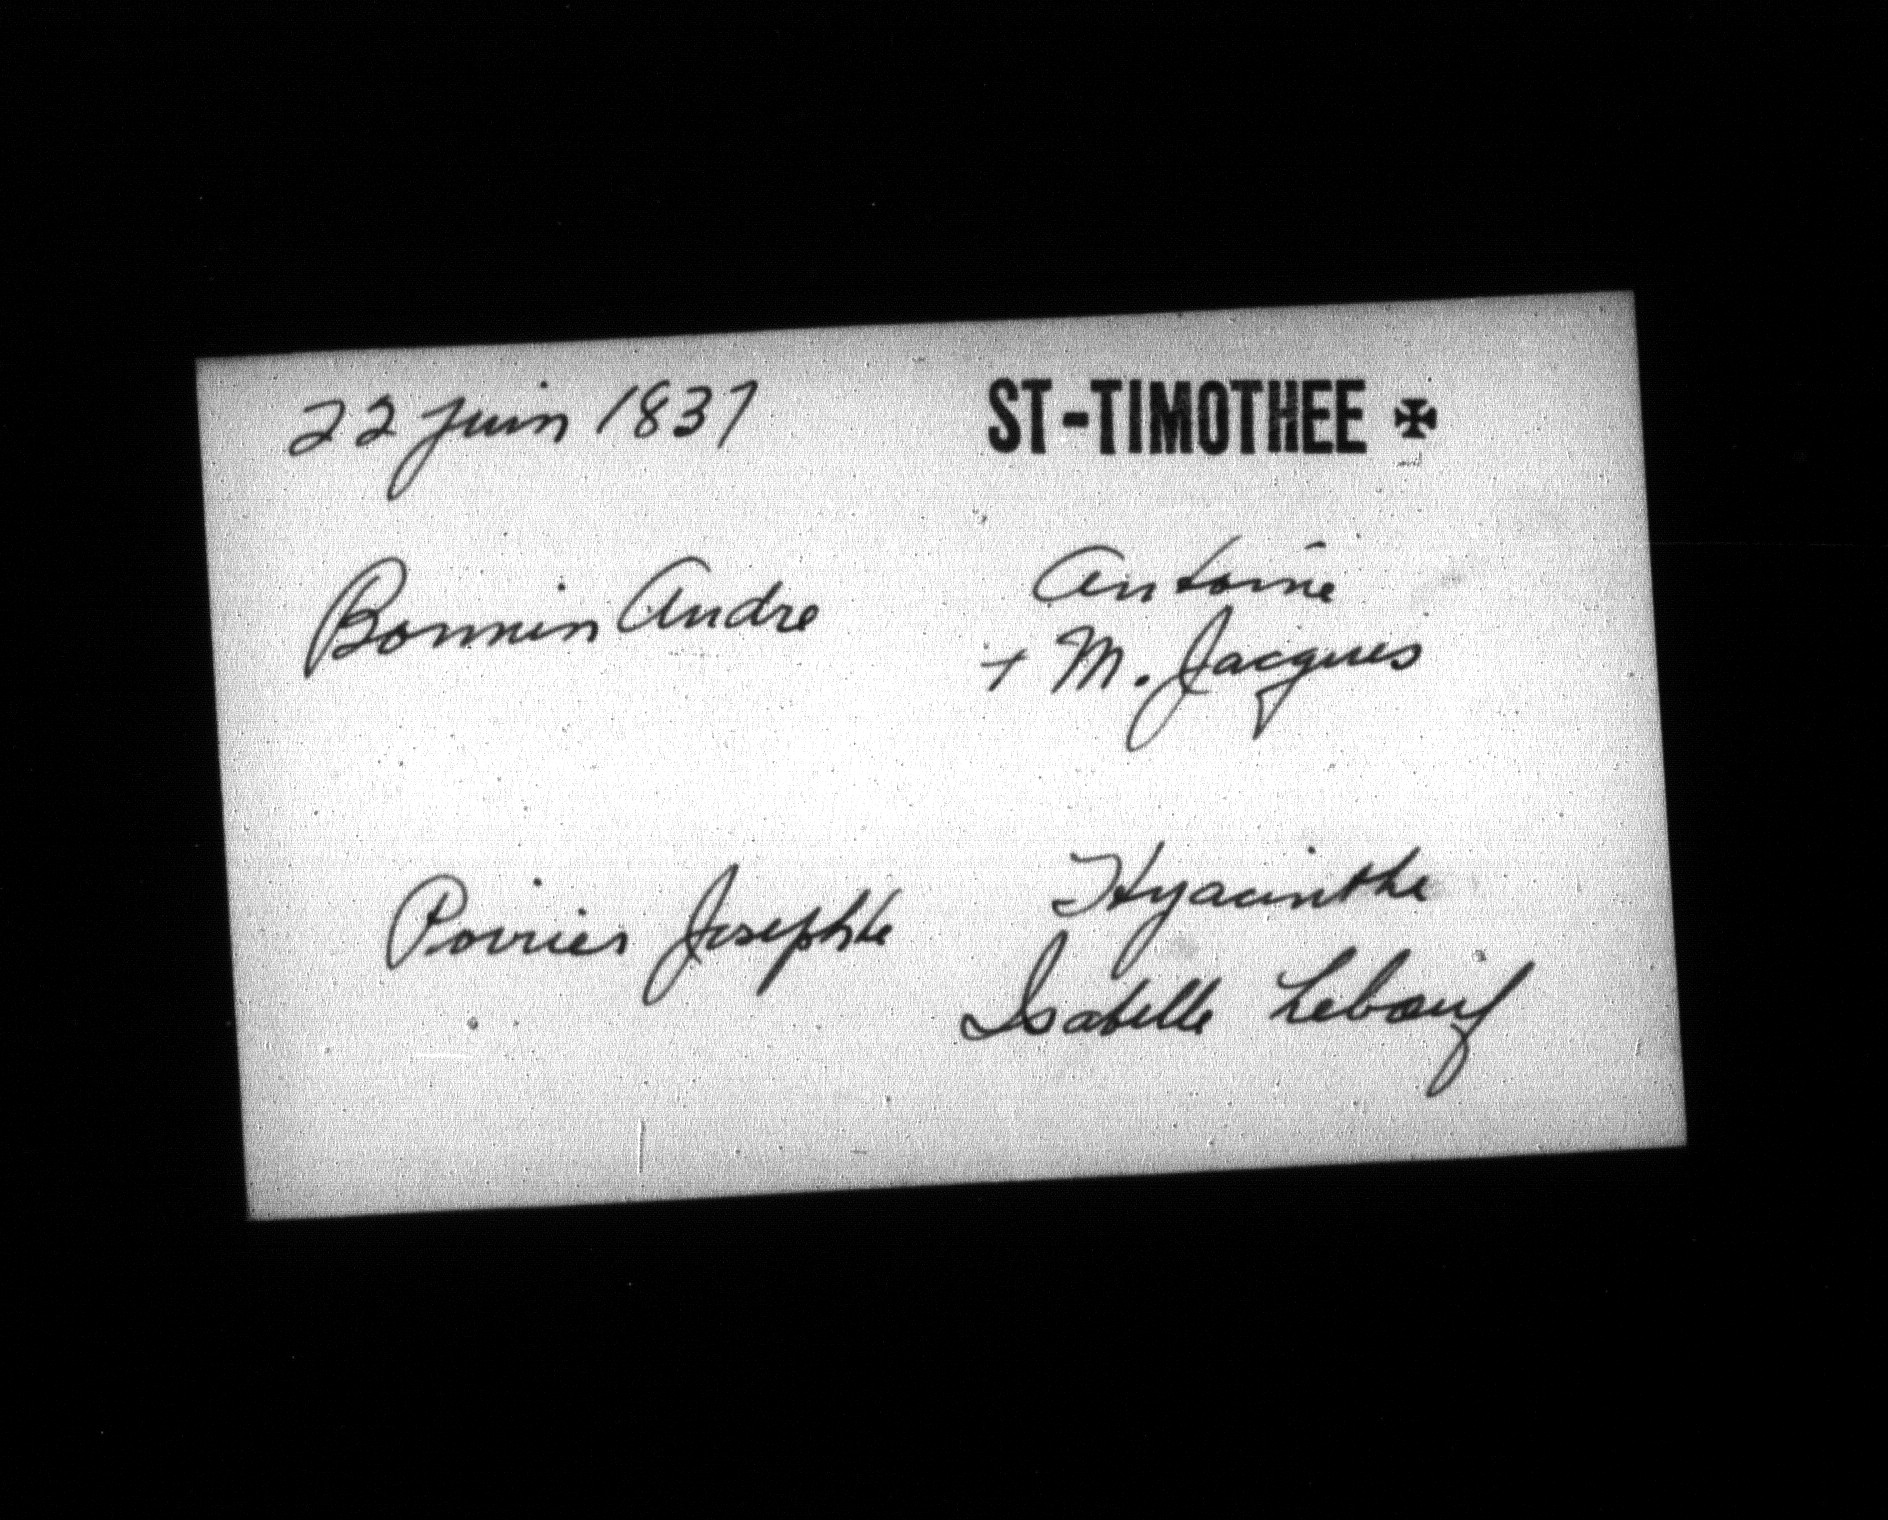 22 Juin 1837 ST-TIMOTHEE ✠
Bonnin Andre Antoine
+ M. Jacques
Poirier Josephte Hyacinthe
Isabelle Leboeuf